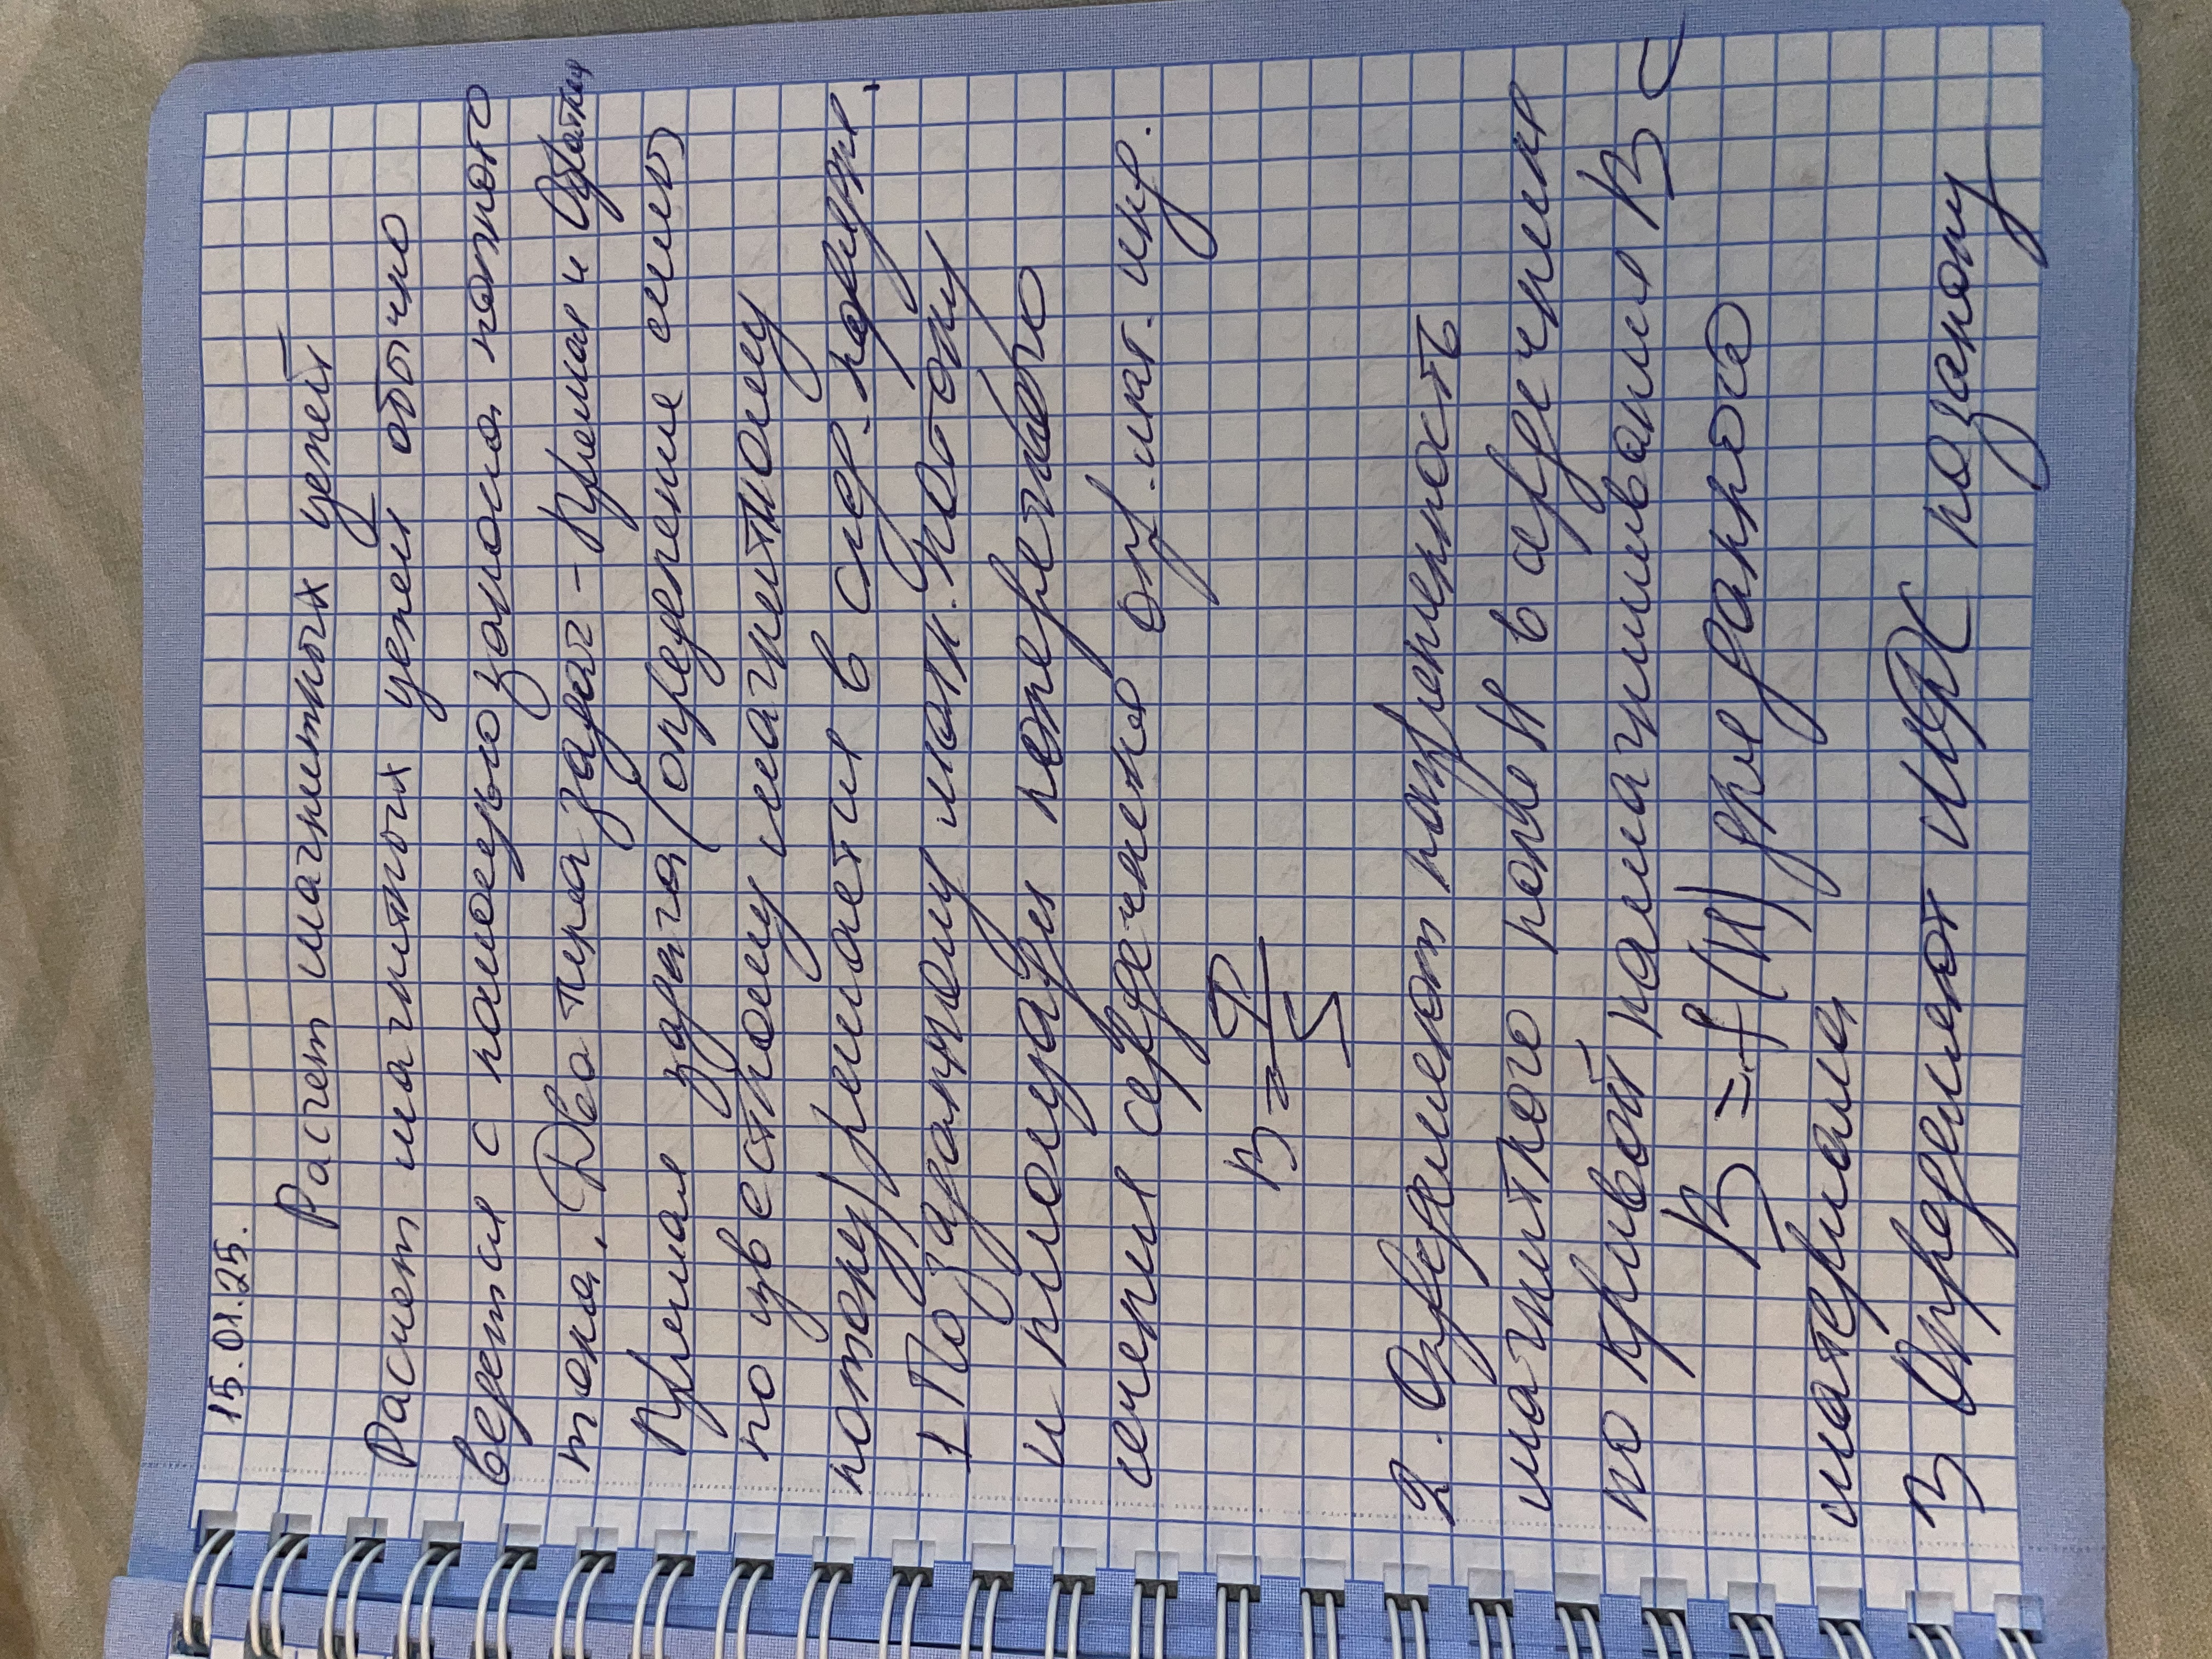 15.01.25.
Расчет магнитных цепей
Расчет магнитных цепей обычно
ведется с помощью закона полного
тока. Два типа задач - Прямая и Обратная
Прямая задача (определение силы
по известному магнитному
потоку) решается в след. порядке.
1 По заданному магн. потоку
и площади поперечного
сечения сердечника опр. маг. инд.
B = Ф/S
2. Определяют напряженность
магнитного поля H в сердечнике
по кривой намагничивания B
B = f(H) для данного
материала
3 Определяют МДС по закону